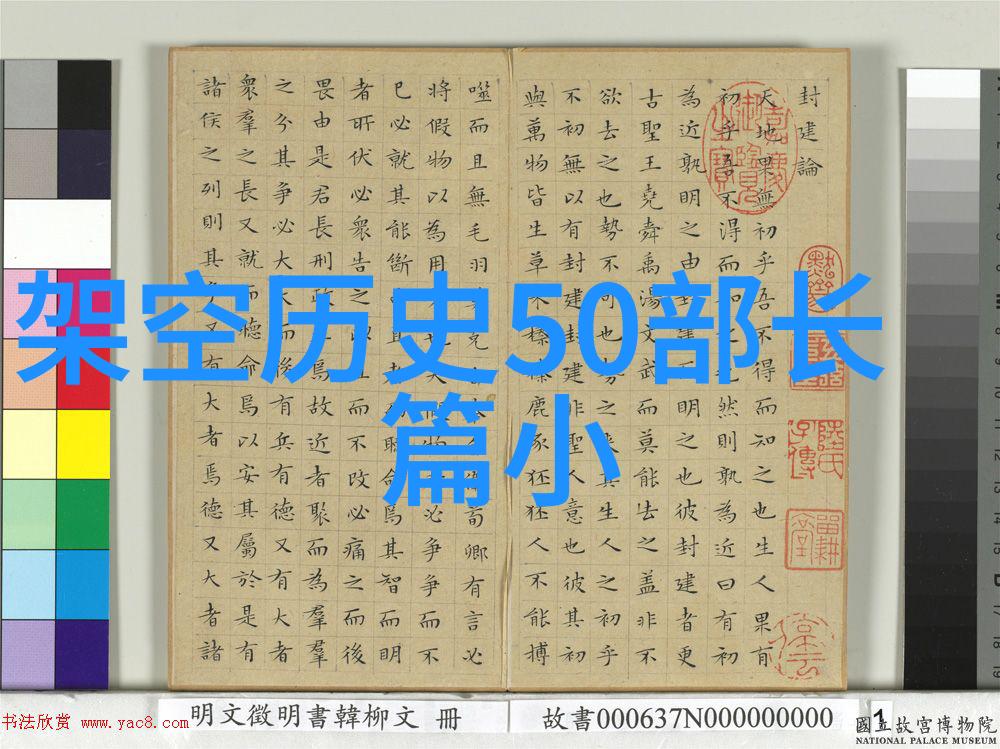 架空历史50部长
篇小
封建論
天地果無初乎吾不得而知之也生人果有
初乎吾不得而知之也然則孰為近曰有初
為近孰明之由封建而明之也彼封建者更
古聖王堯舜禹湯文武而莫能去之蓋非不
欲去之也勢不可也勢之來其生人之初乎
不初無以有封建封建非聖人意也彼其初
與萬物皆生草木榛榛鹿豕狉狉人不能搏
噬而且無毛羽莫克自奉自衛荀卿有言必
將假物以為用者也夫假物者必爭爭而不
已必就其能斷曲直者而聽命焉其智而明
者所伏必衆告之以直而不改必痛之而後
畏由是君長刑政生焉故近者聚而為羣
之分其爭必大大而後有兵有德又有大者
衆羣之長又就而聽命焉以安其屬於是有
諸侯之列則其爭又有大者焉德又大者諸
书法欣赏 www.yac8.com
明文徵明書韓柳文 冊
故書000637N000000000
1
國立故宮博物院
NATIONAL PALACE MUSEUM